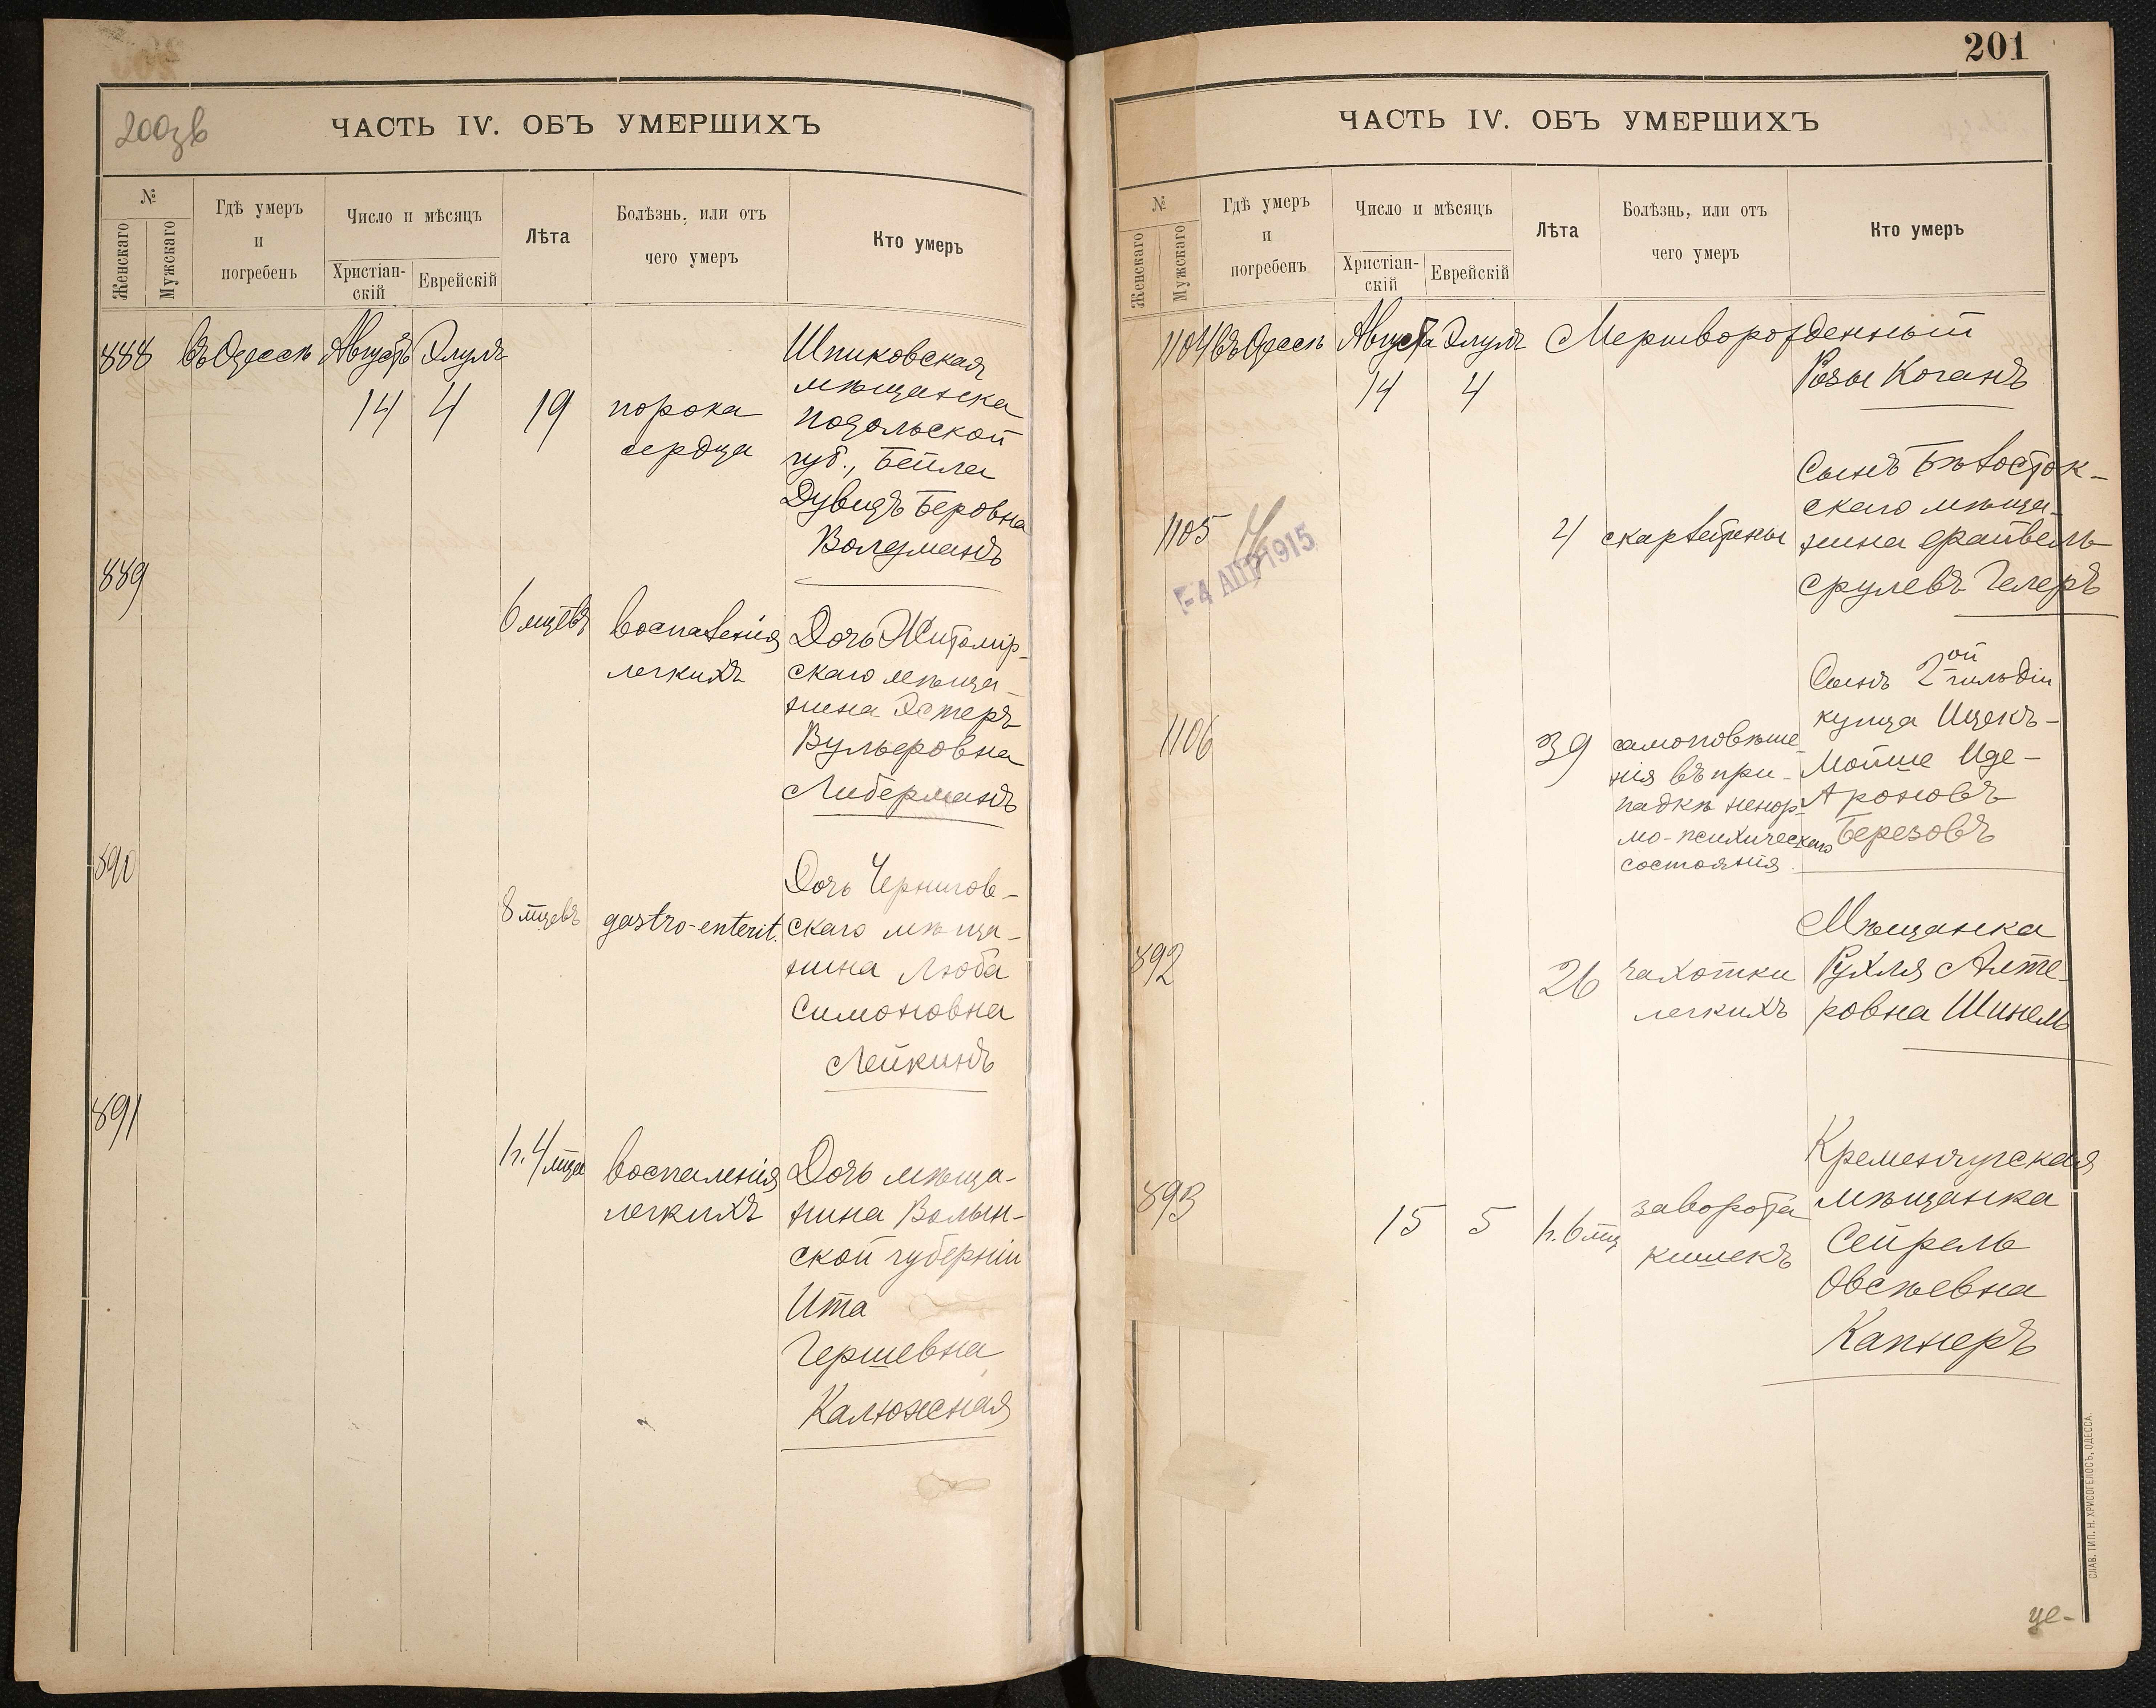 200зв
ЧАСТЬ IV. ОБЪ УМЕРШИХЪ
№
Женскаго
Мужскаго
Гдѣ умеръ
и
погребенъ
Число и мѣсяцъ
Христіан-
скій
Еврейскій
Лѣта
Болѣзнь, или отъ
чего умеръ
Кто умеръ
888 въ Одессѣ Августъ Элулъ
14 4 19 порока
сердца
Шпиковская
мѣщанка
Подольской
губ., Бейла
Дувидъ Беровна
Волдманъ
889
6 мцевъ воспаленія
легкихъ
Дочь Житомір-
скаго мѣща-
нина Эстеръ
Вульфовна
Либерманъ
890
8 мцевъ gastro-enterit.
Дочь Чернигов-
скаго мѣща-
нина Люба
Симоновна
Лейкинъ
891
1г. 4 мца воспаленія
легкихъ
Дочь мѣща-
нина Волын-
ской губерніи
Ита
Гершевна
Калюжная
201
ЧАСТЬ IV. ОБЪ УМЕРШИХЪ
№
Женскаго
Мужскаго
Гдѣ умеръ
и
погребенъ
Число и мѣсяцъ
Христіан-
скій
Еврейскій
Лѣта
Болѣзнь, или отъ
чего умеръ
Кто умеръ
1104 въ Одессѣ Августа Элулъ Мертворожденный
14 4 Розы Коганъ
1105
-4 АПР 1915
4 скарлатины
Сынъ Бѣлосток-
скаго мѣща-
нина Файвель
Срулевъ Гелеръ
1106
39 самоповѣше-
нія въ при-
падкѣ ненор-
мо-психическаго
состоянія
Сынъ 2ой гильдіи
купца Ицекъ-
Мойше Иде-
Ароновъ
Березовъ
892
26 чахотки
легкихъ
Мѣщанка
Рухля Алте-
ровна Шинель
893
15 5 1г. 6 мц заворота
кишекъ
Кременчугская
мѣщанка
Сейрель
Овсѣевна
Капнеръ
СЛАВ. ТИП. Н. ХРИСОГЕЛОСЪ, ОДЕССА.
це-